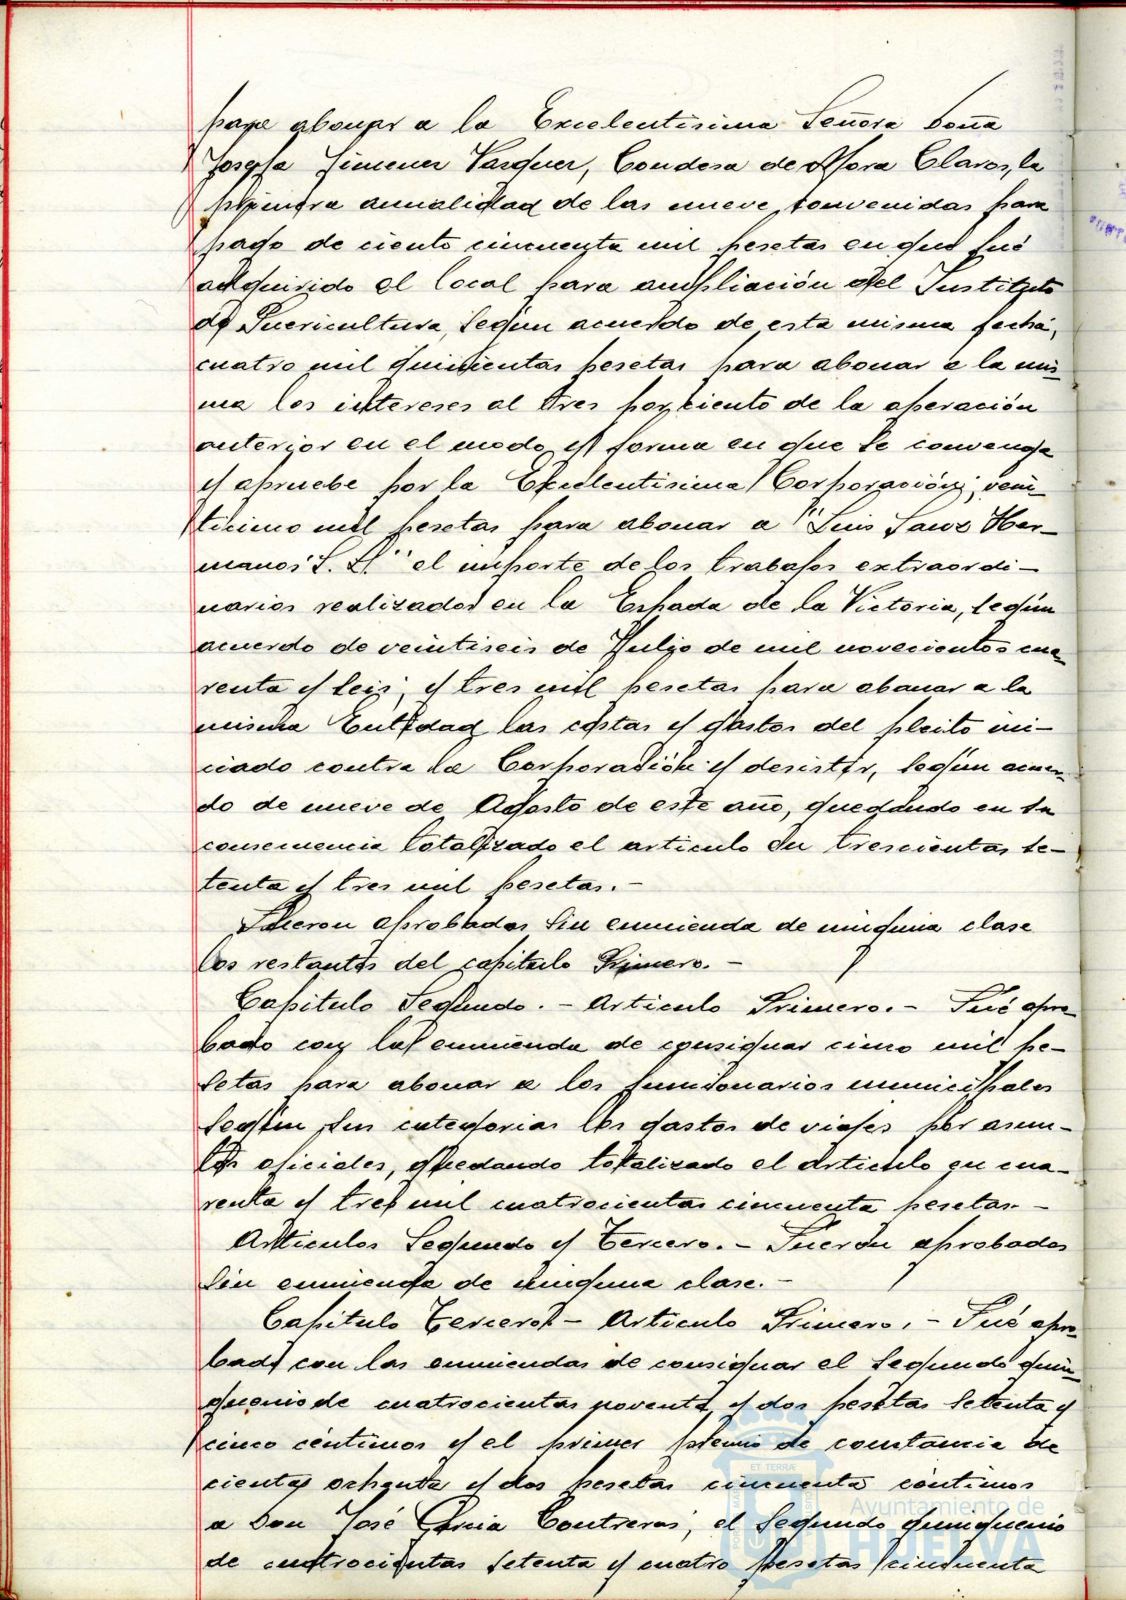 para abonar a la Excelentisima Señora Doña
Josefa Jimenez Vasquez, Condesa de Mora Claros, la
primera anualidad de las nueve convenidas para
pago de ciento cincuenta mil pesetas en que fué
adquirido el local para ampliación del Instituto
de Puericultura, según acuerdo de esta misma fecha;
cuatro mil quinientas pesetas para abonar a la mis-
ma los intereses al tres por ciento de la operación
anterior en el modo y forma en que se convenga
y apruebe por la Excelentisima Corporación; vein-
ticinco mil pesetas para abonar a "Luis Sanz Her-
manos S. L." el importe de los trabajos extraordi-
narios realizados en la Espada de la Victoria, según
acuerdo de veintiseis de Julio de mil novecientos cua-
renta y seis; y tres mil pesetas para abonar a la
misma Entidad las costas y gastos del pleito ini-
ciado contra la Corporación y desistir, según acuer-
do de nueve de Agosto de este año, quedando en su
consecuencia totalizado el articulo en trescientas se-
tenta y tres mil pesetas.-
Fueron aprobados sin enmienda de ninguna clase
los restantes del capitulo Primero.-
Capitulo Segundo.- Articulo Primero.- Fué apro-
bado con la enmienda de consignar cinco mil pe-
setas para abonar a los funcionarios municipales
según sus categorias los gastos de viajes por asun-
tos oficiales, quedando totalizado el articulo en cua-
renta y tres mil cuatrocientas cincuenta pesetas.-
Articulos Segundo y Tercero.- Fueron aprobados
sin enmienda de ninguna clase.-
Capitulo Tercero.- Articulo Primero.- Fué apro-
bado con las enmiendas de consignar el segundo quin-
quenio de cuatrocientas noventa y dos pesetas setenta y
cinco céntimos y el primer premio de constancia de
cientas ochenta y dos pesetas cincuenta céntimos
a Don José Garcia Contreras; el segundo quinquenio
de cuatrocientas setenta y cuatro pesetas cincuenta
Ayuntamiento de
HUELVA